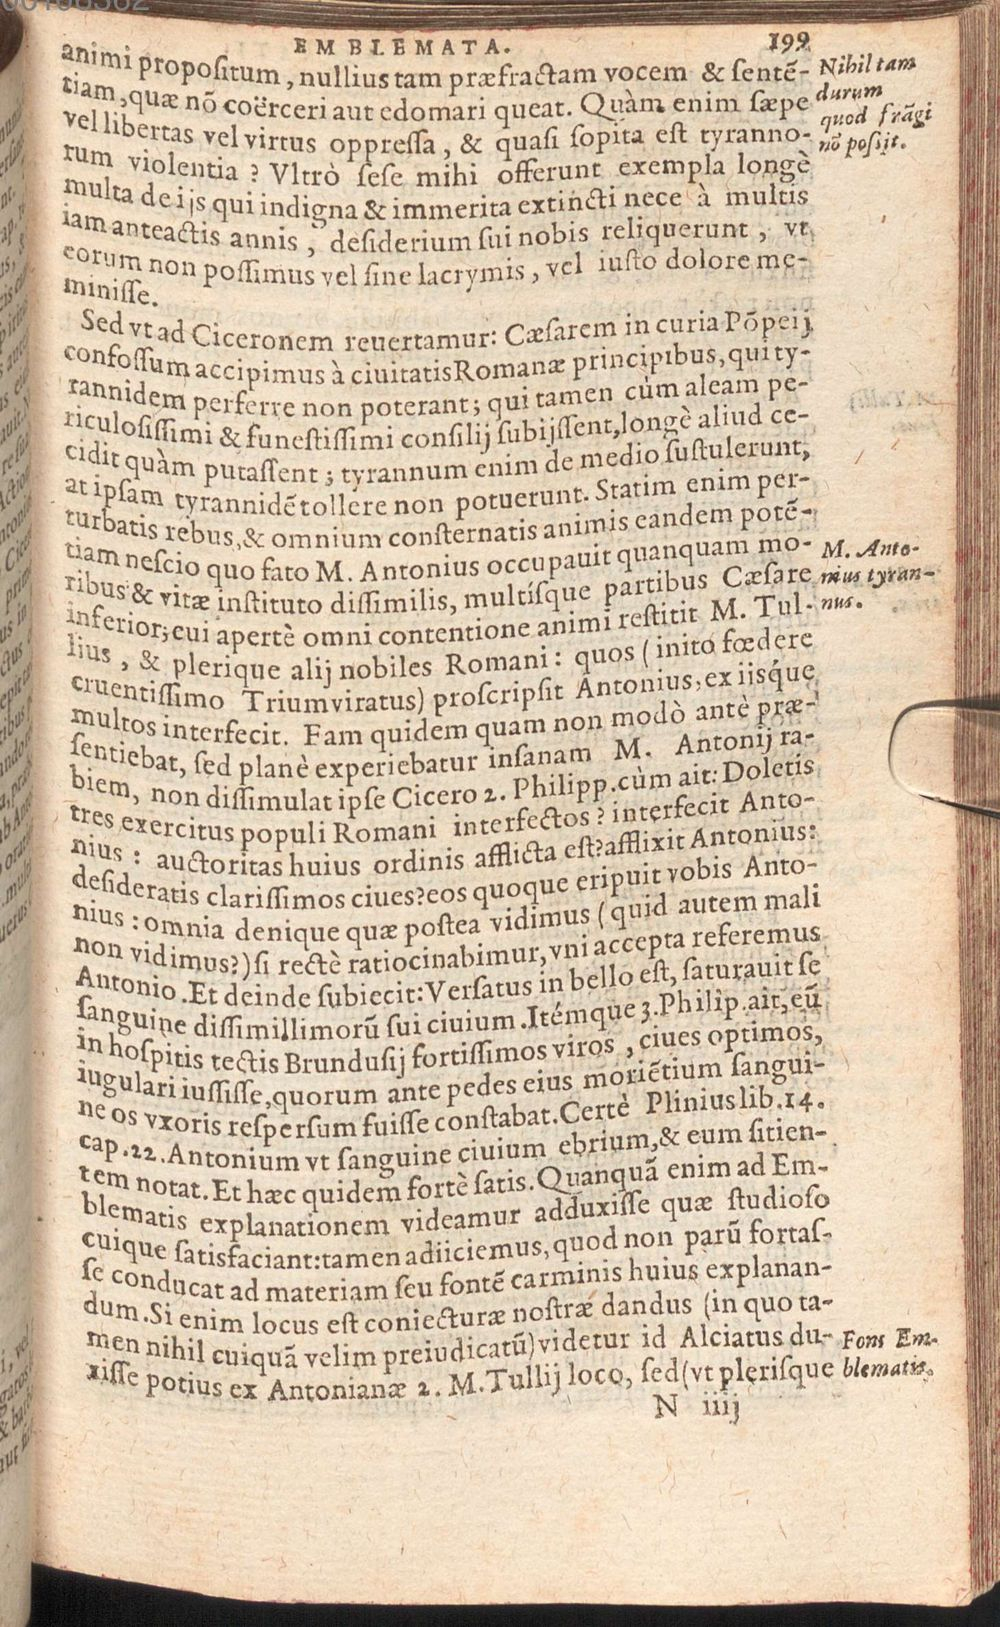 EMBLEMATA. 199
animi propoſitum, nullius tam præfractam vocem & ſentẽ-
tiam, quæ nõ coërceri aut edomari queat. Quàm enim ſæpe
vel libertas vel virtus oppreſſa, & quaſi ſopita eſt tyranno-
rum violentia? Vltrò ſeſe mihi offerunt exempla longè
multa de ijs qui indigna & immerita extincti nece à multis
iam anteactis annis, deſiderium ſui nobis reliquerunt, vt
eorum non poſſimus vel ſine lacrymis, vel iuſto dolore me-
miniſſe.
Nihil tam
durum
quod frãgi
nõ poſsit.
Sed vt ad Ciceronem reuertamur: Cæſarem in curia Põpeij
confoſſum accipimus à ciuitatis Romanæ principibus, qui ty-
rannidem perferre non poterant; qui tamen cùm aleam pe-
riculoſiſſimi & funeſtiſſimi conſilij ſubijſſent, longè aliud ce-
cidit quàm putaſſent; tyrannum enim de medio ſuſtulerunt,
at ipſam tyrannidẽ tollere non potuerunt. Statim enim per-
turbatis rebus, & omnium conſternatis animis eandem potẽ-
tiam neſcio quo fato M. Antonius occupauit quanquam mo-
ribus & vitæ inſtituto diſſimilis, multíſque partibus Cæſare
inferior; cui apertè omni contentione animi reſtitit M. Tul-
lius, & plerique alij nobiles Romani: quos (inito fœdere
cruentiſſimo Triumviratus) proſcripſit Antonius, ex iisque
multos interfecit. Eam quidem quam non modò antè præ-
ſentiebat, ſed planè experiebatur inſanam M. Antonij ra-
biem, non diſſimulat ipſe Cicero 2. Philipp. cùm ait: Doletis
tres exercitus populi Romani interfectos? interfecit Anto-
nius: auctoritas huius ordinis afflicta eſt? afflixit Antonius:
deſideratis clariſſimos ciues? eos quoque eripuit vobis Anto-
nius: omnia denique quæ poſtea vidimus (quid autem mali
non vidimus?) ſi rectè ratiocinabimur, vni accepta referemus
Antonio. Et deinde ſubiecit: Verſatus in bello eſt, ſaturauit ſe
ſanguine diſſimillimorũ ſui ciuium. Itémque 3. Philip. ait, eũ
in hoſpitis tectis Brunduſij fortiſſimos viros, ciues optimos,
iugulari iuſſiſſe, quorum ante pedes eius moriẽtium ſangui-
ne os vxoris reſperſum fuiſſe conſtabat. Certè Plinius lib. 14.
cap. 22. Antonium vt ſanguine ciuium ebrium, & eum ſitien-
tem notat. Et hæc quidem fortè ſatis. Quanquã enim ad Em-
blematis explanationem videamur adduxiſſe quæ ſtudioſo
cuique ſatisfaciant: tamen adiiciemus, quod non parũ fortaſ-
ſe conducat ad materiam ſeu fontẽ carminis huius explanan-
dum. Si enim locus eſt coniecturæ noſtræ dandus (in quo ta-
men nihil cuiquã velim preiudicatũ) videtur id Alciatus du-
xiſſe potius ex Antonianæ 2. M. Tullij loco, ſed (vt pleriſque
M. Anto-
nius tyran-
nus.
Fons Em-
blematis.
N iiij